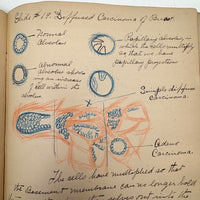 Slide # 19. Diffused Carcinoma of Breast
Normal
Alveolus
Papillary alveolus in
which the cells multiply
so that we have
Papillary projection
Abnormal
Alveolus showing
an increase
of cells within the
alveolus
Simple diffused
Carcinoma.
X
Adeno
Carcinoma.
The cells have multiplied so that
the basement membrane can no longer hold